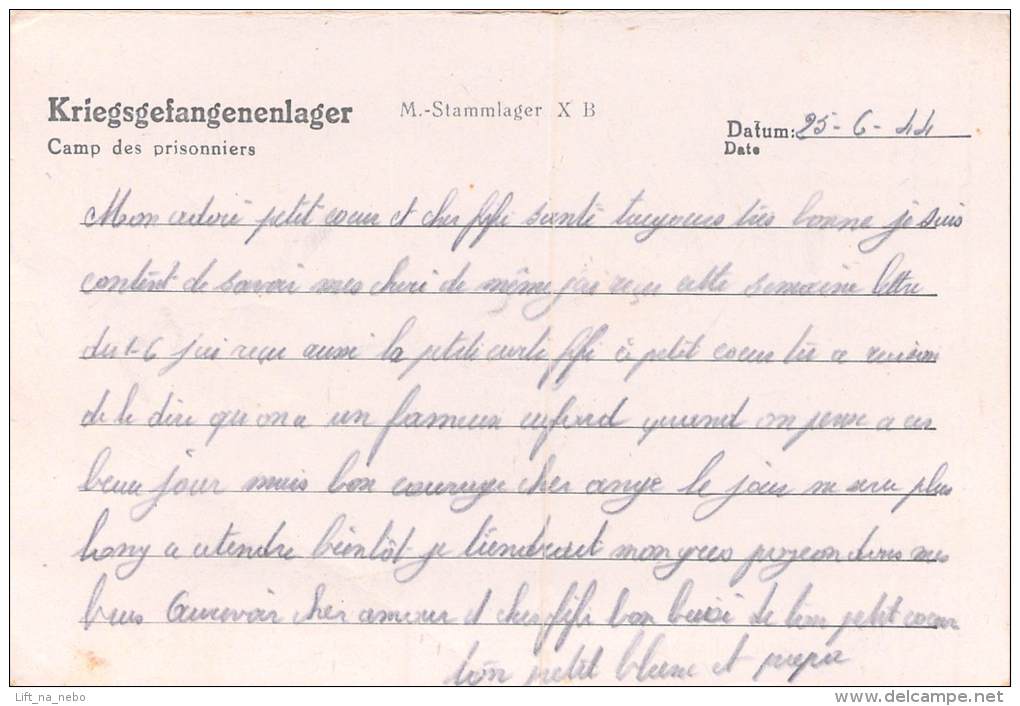 Kriegsgefangenenlager M.-Stammlager X B
Camp des prisonniers
Datum: 25-6-44
Date
Mon adoré petit coeur et cher fifi santé toujours très bonne je suis
contént de savoir mes cheri de même jai reçu cette semaine lettre
du 1-6 jai reçu aussi la ptite carte fifi à petit coeur tu a raison
de le dire qu on a un fameux quand on pense a ces
beau jour mais bon courage cher ange le jour ne sera plus
long a atendre bientôt je tiendrait mon gros pigeon dans mes
bras Aurevoir cher amour et cher fifi bon baisé de ton petit coeur
ton petit blanc et
Lift_na_nebo
delcampe.net